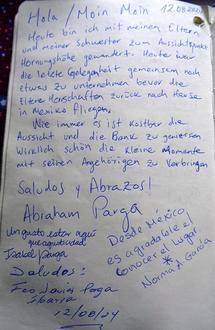 Hola / Moin Moin 12.08.2024
Heute bin ich mit meinen Eltern
und meiner Schwester zum Aussichtspunkt
Hörnungshöhe gewandert. Heute war
die letzte Gelegenheit gemeinsam noch
etwas zu unternehmen bevor die
Eltere Herrschaften zurück nach Hause
in Mexiko fliegen.
Wie immer es ist kostbar die
Aussicht und die Bank zu geniessen
Wirklich schön die kleine Momente
mit seinen Angehörigen zu Verbringen
Saludos y Abrazos!
Abraham Parga
Un gusto estar aquí
que
Isabel Parga
Desde México
es agradable el
conocer el lugar
Norma A. García
Saludos:
Fco Javier Parga
Ibarra
12/08/24